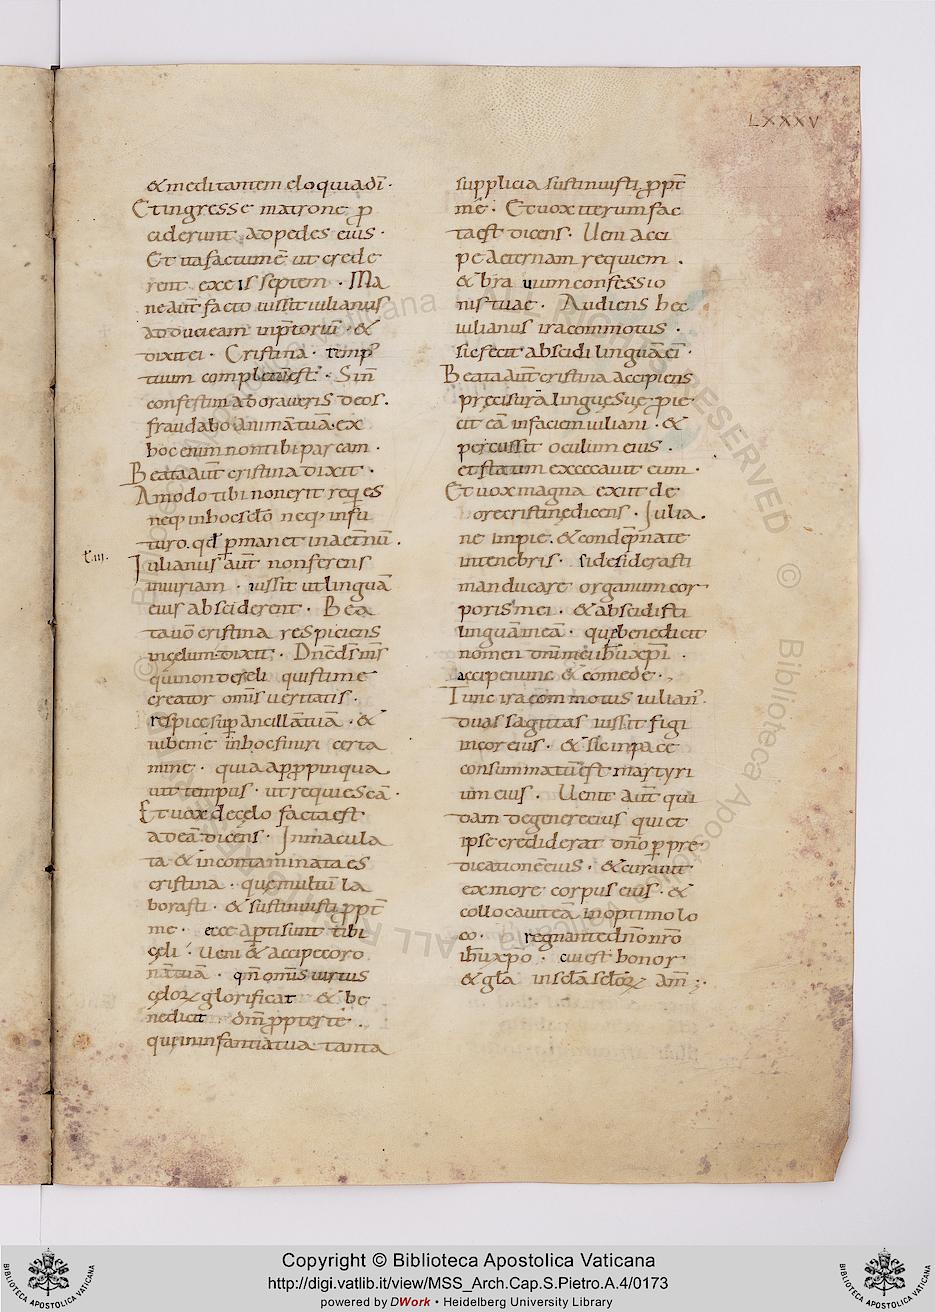 LXXXV
& meditantem eloquia dī·
Et ingresse matrone p̄
ciderunt ad pedes eius·
Et ita factum ē ut crede
rent ex eis septem· Ma
ne aut̄ facto iussit iulianus
adduci eam in p̄toriū· &
dixit ei· Cristina· temp᾿
tuum completū est· Sin̄
confestim aboraveris deos·
fraudabo animā tuā· ex
hoc enim non tibi parcam·
Beata aut̄ cristina dixit·
Amodo tibi non erit reqes
neq; in hoc sclō neq; infu
turo· qđ p̱manet in aet̄nū·
t̄ iii.
Iulianus aut̄ non ferens
iniuriam· iussit ut linguā
eius absciderent· Bea
ta uō cristina respiciens
in cęlum dixit; Dn̄e d̄s m̄s
qui non deseli qui st̄ime
creator om̄is ueritatis·
respice sup̱ ancillā tuā· &
iube me in hoc finiri certa
mine· quia app̱pinqua
uit tempus· ut requiescā·
Et uox de cęlo facta est
ad eā dicens· Inmacula
ta & incontaminata es
cristina· que multū la
borasti· & sustinuisti p̱pt̄
me· ecce ap̱ti sunt tibi
cęli· Ueni & accipe coro
nā tuā· qm̄ om̄is uirtus
cęloꝝ glorificat & be
nedicit dm̄ p̱pter te·
qui in infantia tua tanta
supplicia sustinuisti p̱pt̄
me· Et uox iterum fac
ta est dicens· Ueni acci
pe aeternam requiem·
& bra uium confessio
nis tuae· Audiens hec
iulianus ira commotus·
sic fecit abscidi linguā ei·
Beata aut̄ cristina accipiens
pręcisurā linguę suę· proie
cit eā in faciem iuliani· &
percussit oculum eius·
et statum excecauit eum·
Et uox magna exiit de
ore cristinę dicens· Iulia·
ne impie· & condēpnate
in tenebris· si desiderasti
manducare organum cor
poris mei· & abscidisti
linguā meā· que benedicit
nomen dn̄i mei ih̄u xp̄i·
accipe nunc & comede·,
Tunc ira commotus iulian᾿·
duas sagittas iussit figi
in cor eius· & sic in pace
consummatū est martyri
um eius· Uenit aut̄ qui
dam de genere eius qui et
ipse crediderat dn̄o p̱ pre
dicationē eius· & curauit
ex more corpus eius· &
collocauit eā in optimo lo
co· regnante dn̄o nr̄o
ih̄u xp̄o· cui est honor
& glā in sclā sclōꝝ am̄;·
Copyright © Biblioteca Apostolica Vaticana
http://digi.vatlib.it/view/MSS_Arch.Cap.S.Pietro.A.4/0173
powered by DWork • Heidelberg University Library
BIBLIOTECA APOSTOLICA VATICANA
BIBLIOTECA APOSTOLICA VATICANA
© Biblioteca Apostolica Vaticana ALL RIGHTS RESERVED